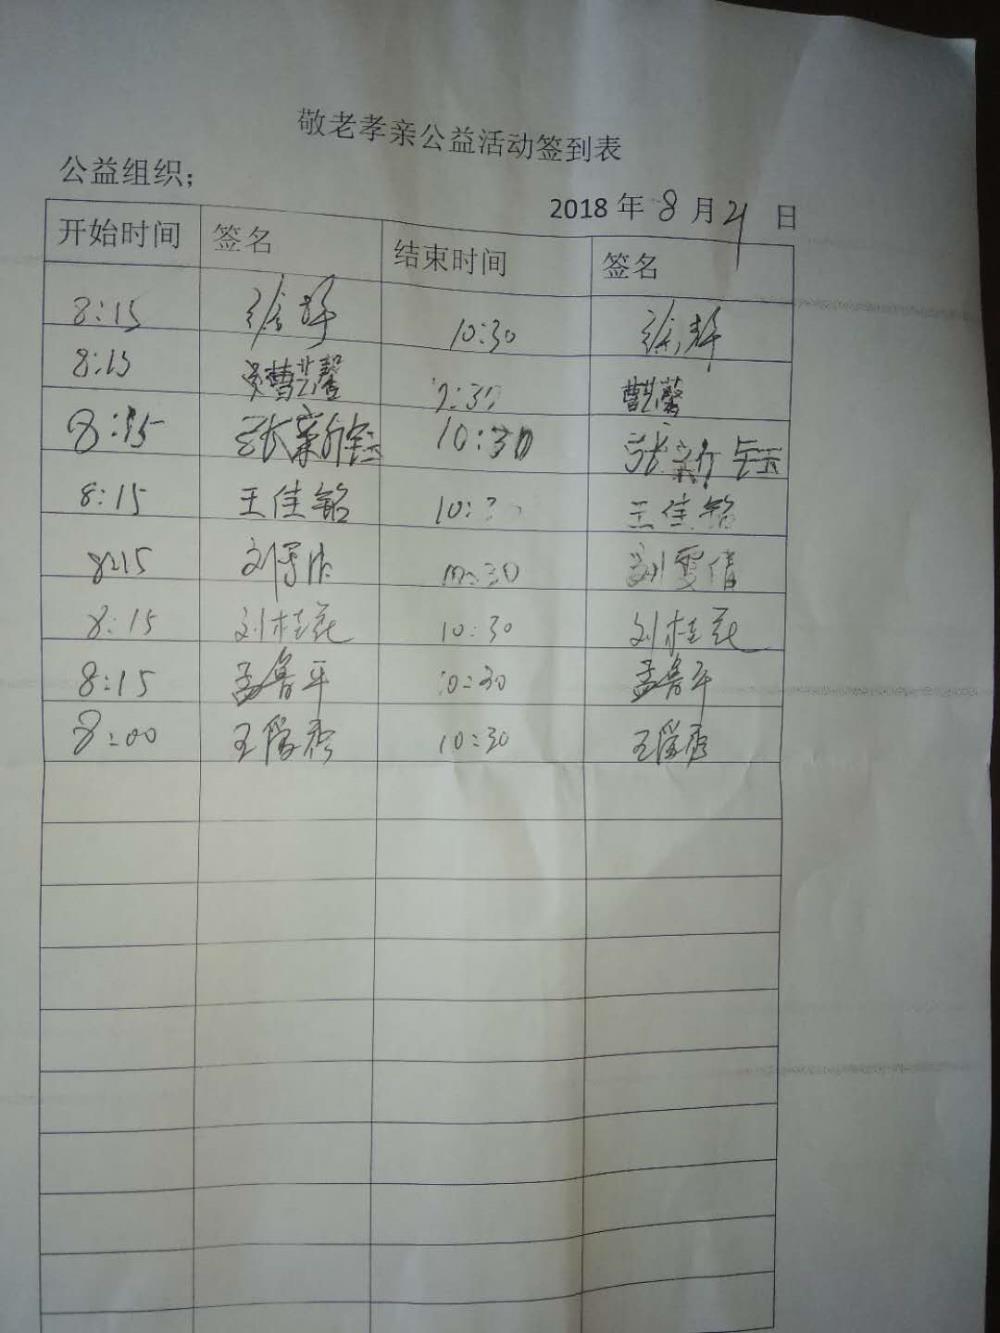 敬老孝亲公益活动签到表
公益组织；
2018 年 8 月 21 日
开始时间 签名 结束时间 签名
8:15 徐静 10:30 徐静
8:15 曹芸馨 曹芸馨
8:15 张新钰 10:30 张新钰
8:15 王佳铭 10: 王佳铭
8:15 刘雯倩 10:30 刘雯倩
8:15 刘桂花 10:30 刘桂花
8:15 孟鲁平 10:30 孟鲁平
8:00 王 秀 10:30 王 秀